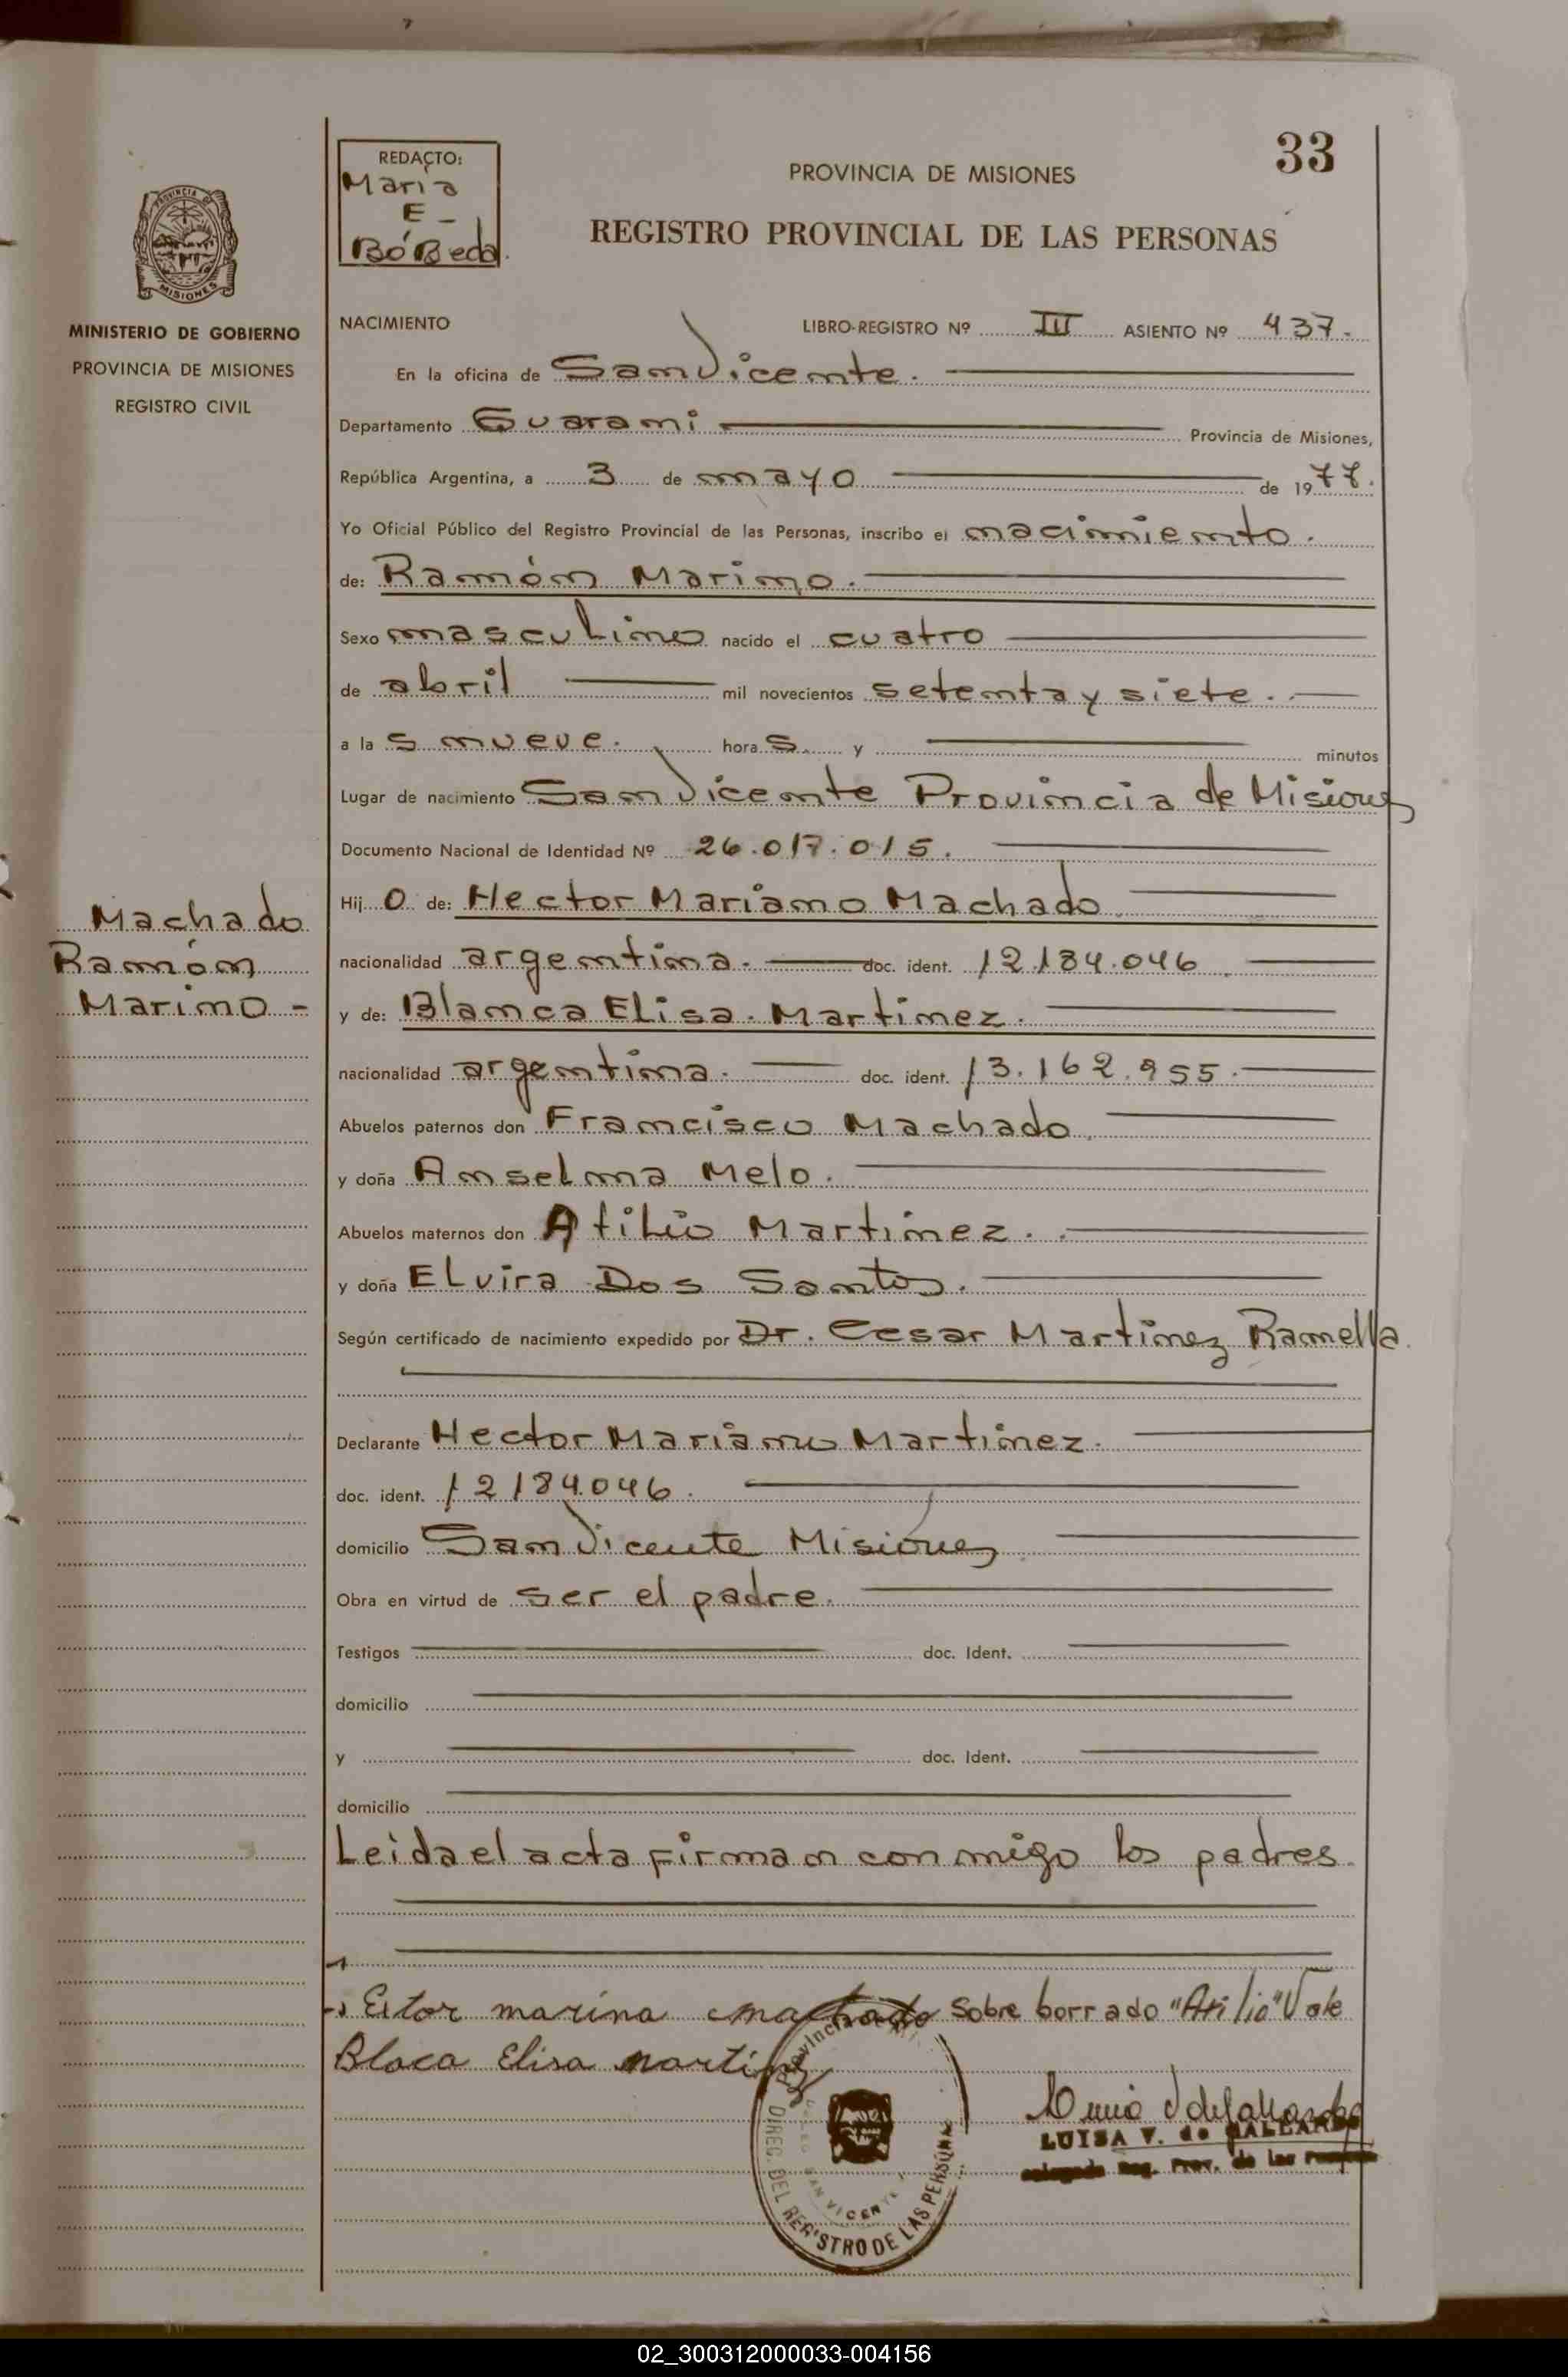 33
REDACTO:
Maria
E -
BóBeda.
PROVINCIA DE MISIONES
REGISTRO PROVINCIAL DE LAS PERSONAS
PROVINCIA DE
MISIONES
MINISTERIO DE GOBIERNO
PROVINCIA DE MISIONES
REGISTRO CIVIL
NACIMIENTO LIBRO-REGISTRO Nº III ASIENTO Nº 437.
En la oficina de San Vicente.
Departamento Guarani Provincia de Misiones,
República Argentina, a 3 de mayo de 1977.
Yo Oficial Público del Registro Provincial de las Personas, inscribo el nacimiento.
de: Ramón Marino.
Sexo masculino nacido el cuatro
de abril mil novecientos setenta y siete.
a la s nueve. hora s. y minutos
Lugar de nacimiento San Vicente Provincia de Misiones
Documento Nacional de Identidad Nº 26.017.015.
Machado
Ramón
Marino -
Hij o de: Hector Mariano Machado
nacionalidad argentina. doc. ident. 12.184.046
y de: Blanca Elisa. Martinez.
nacionalidad argentina. doc. ident. 13.162.955.
Abuelos paternos don Francisco Machado
y doña Anselma Melo.
Abuelos maternos don Atilio Martinez.
y doña Elvira Dos Santos.
Según certificado de nacimiento expedido por Dr. Cesar Martinez Ramella.
Declarante Hector Mariano Martinez.
doc. ident. 12184.046.
domicilio San Vicente Misiones
Obra en virtud de ser el padre.
Testigos doc. Ident.
domicilio
y doc. Ident.
domicilio
Leida el acta firman conmigo los padres.
Eitor marina machado Sobre borrado "Atilio" Vale
Blaca Elisa martinez
LUISA V. de
Reg. Prov. de las
DIREC. DEL REGISTRO DE LAS PERSONAS
SAN VICENTE
02_300312000033-004156